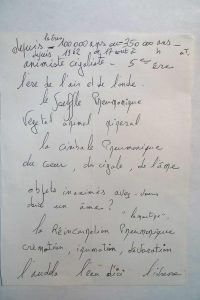 depuis - 100 000 ans ou - 350 000 ans -
depuis 1962
animiste cigaliste - 5ème era
l'ère de l'air et de l'onde.
le souffle Pneumonique
Vegetal animal mineral
la cimbale Pneumonique
du coeur, du cigale, de l'âme
objets inanimés avez-vous
donc un âme ?
la Réincarnation Pneumonique
crémation, inumation,
l'audela l'eau d'ici